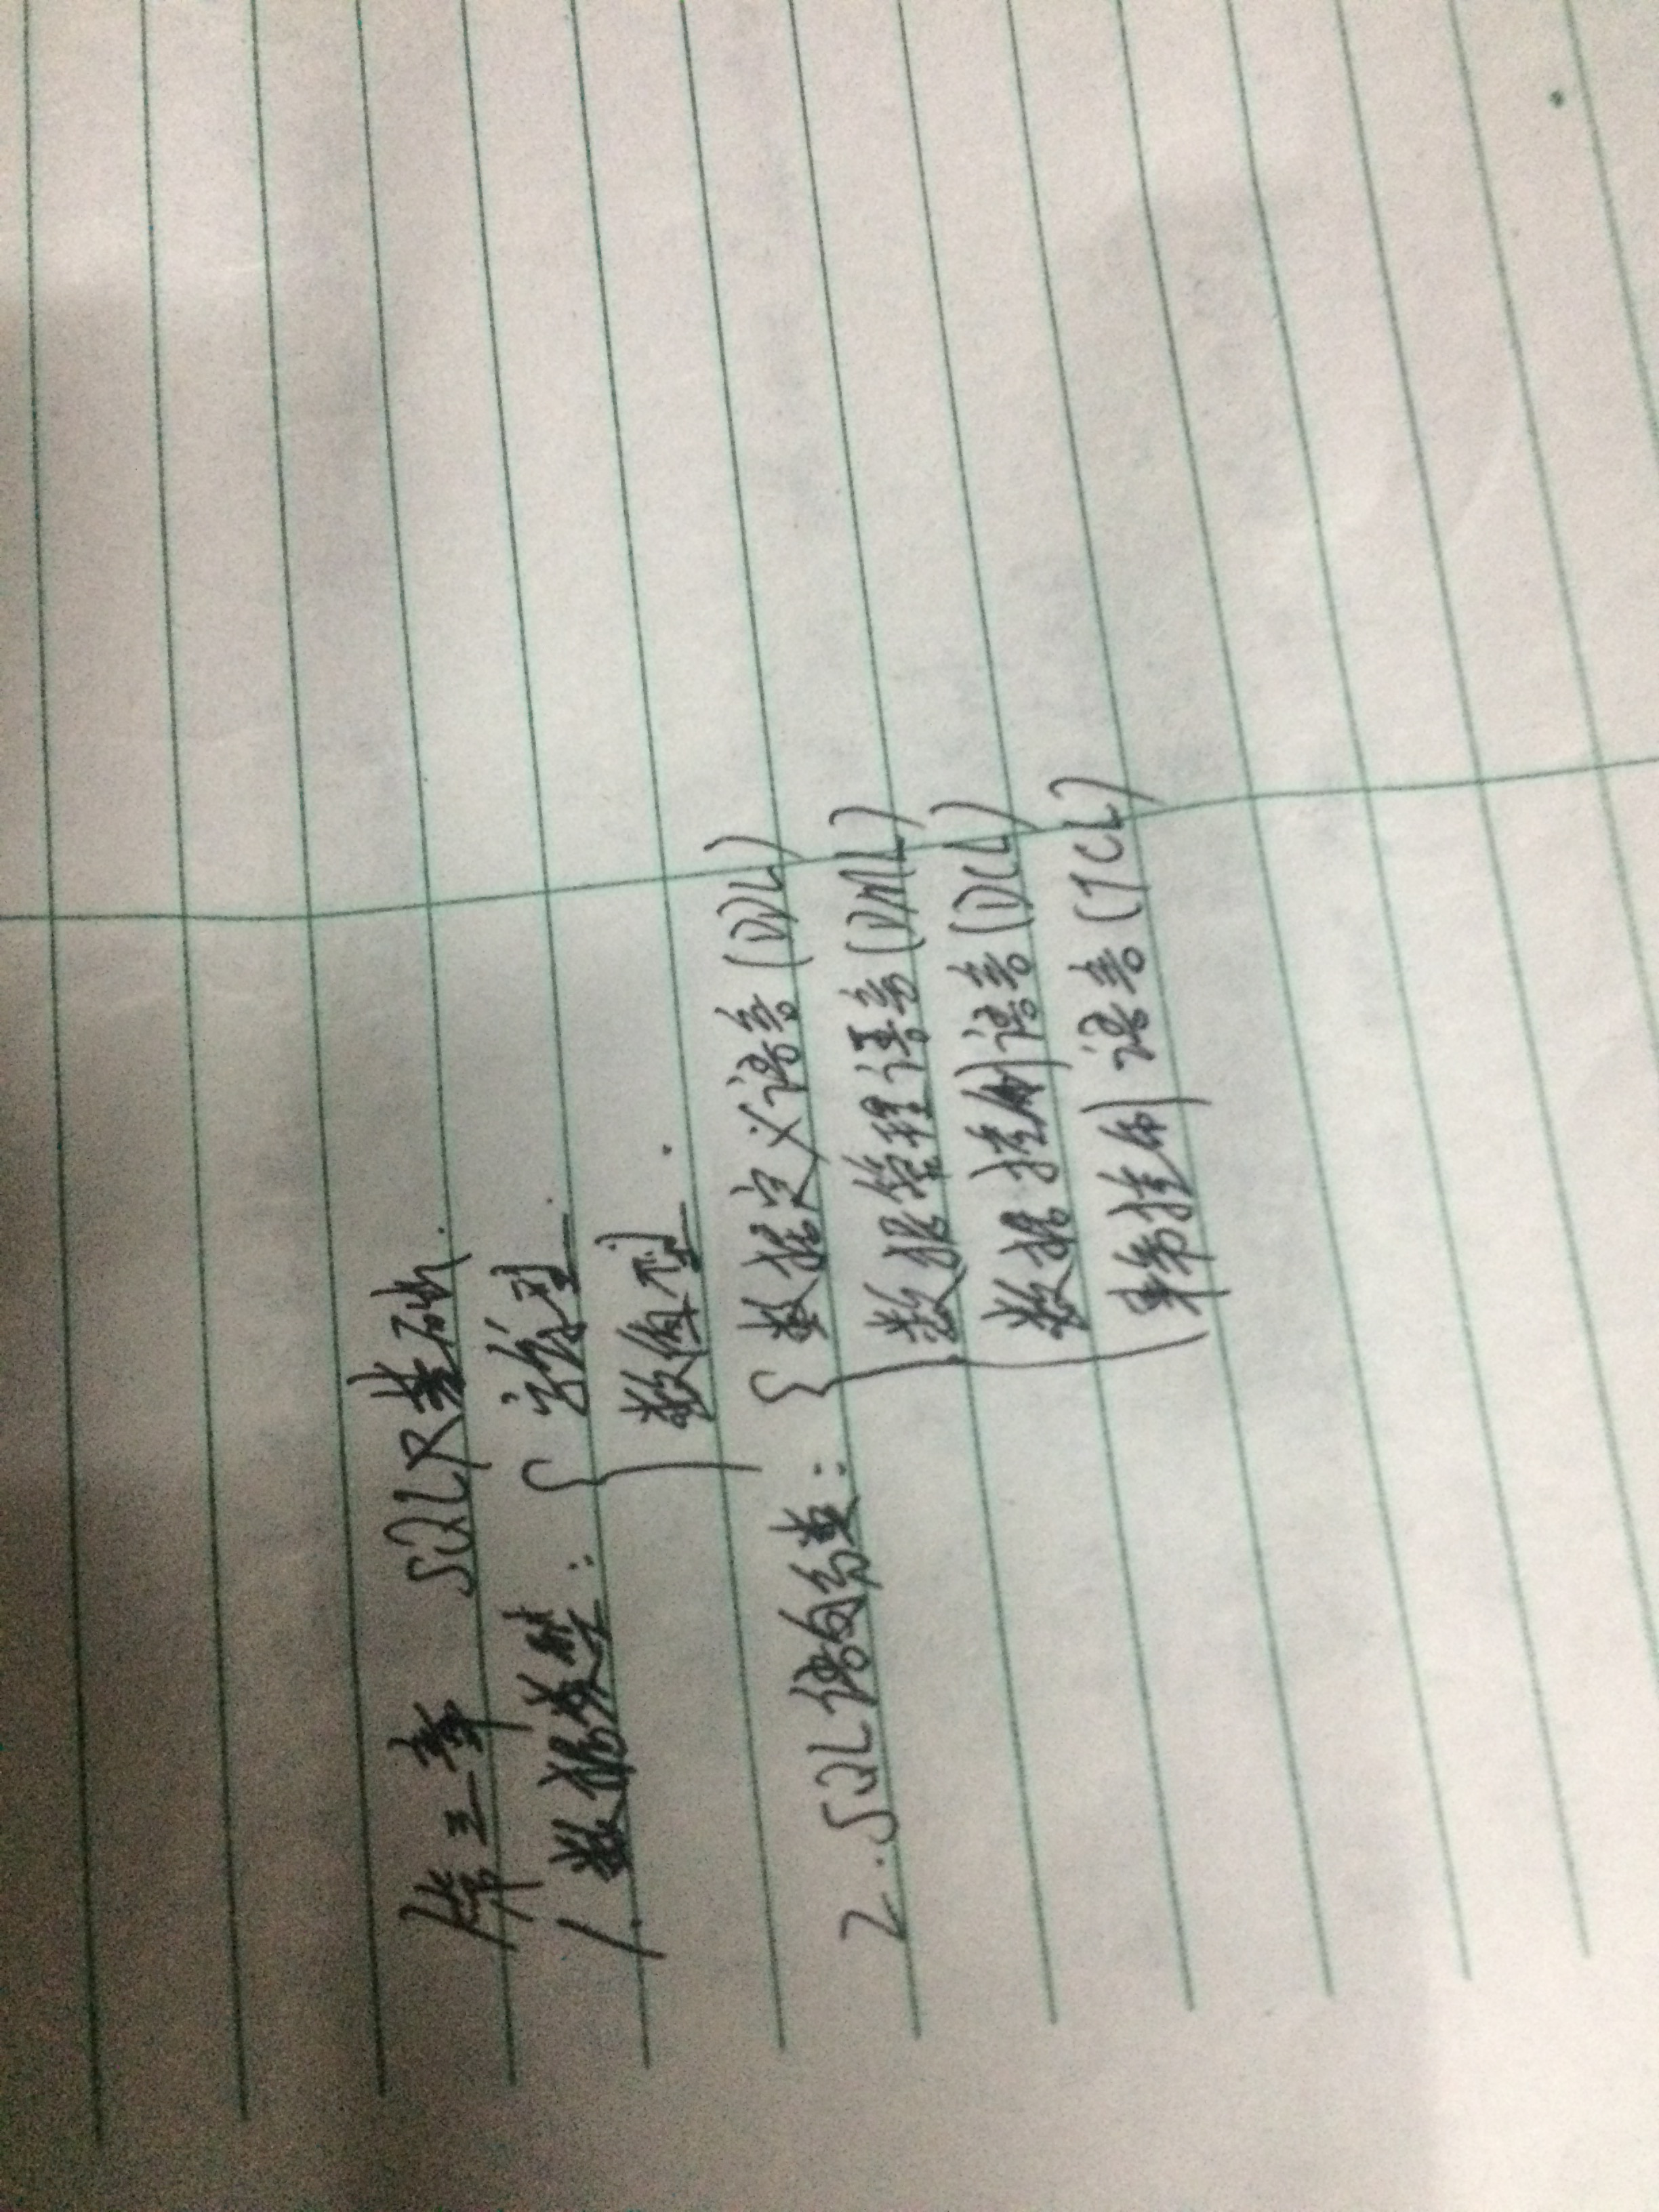 第三章 SQL基础.
1. 数据类型: { 字符型.
数值型.
2. SQL语句分类: { 数据定义语言(DDL)
数据管理语言(DML)
数据控制语言(DCL)
事务控制语言(TCL)